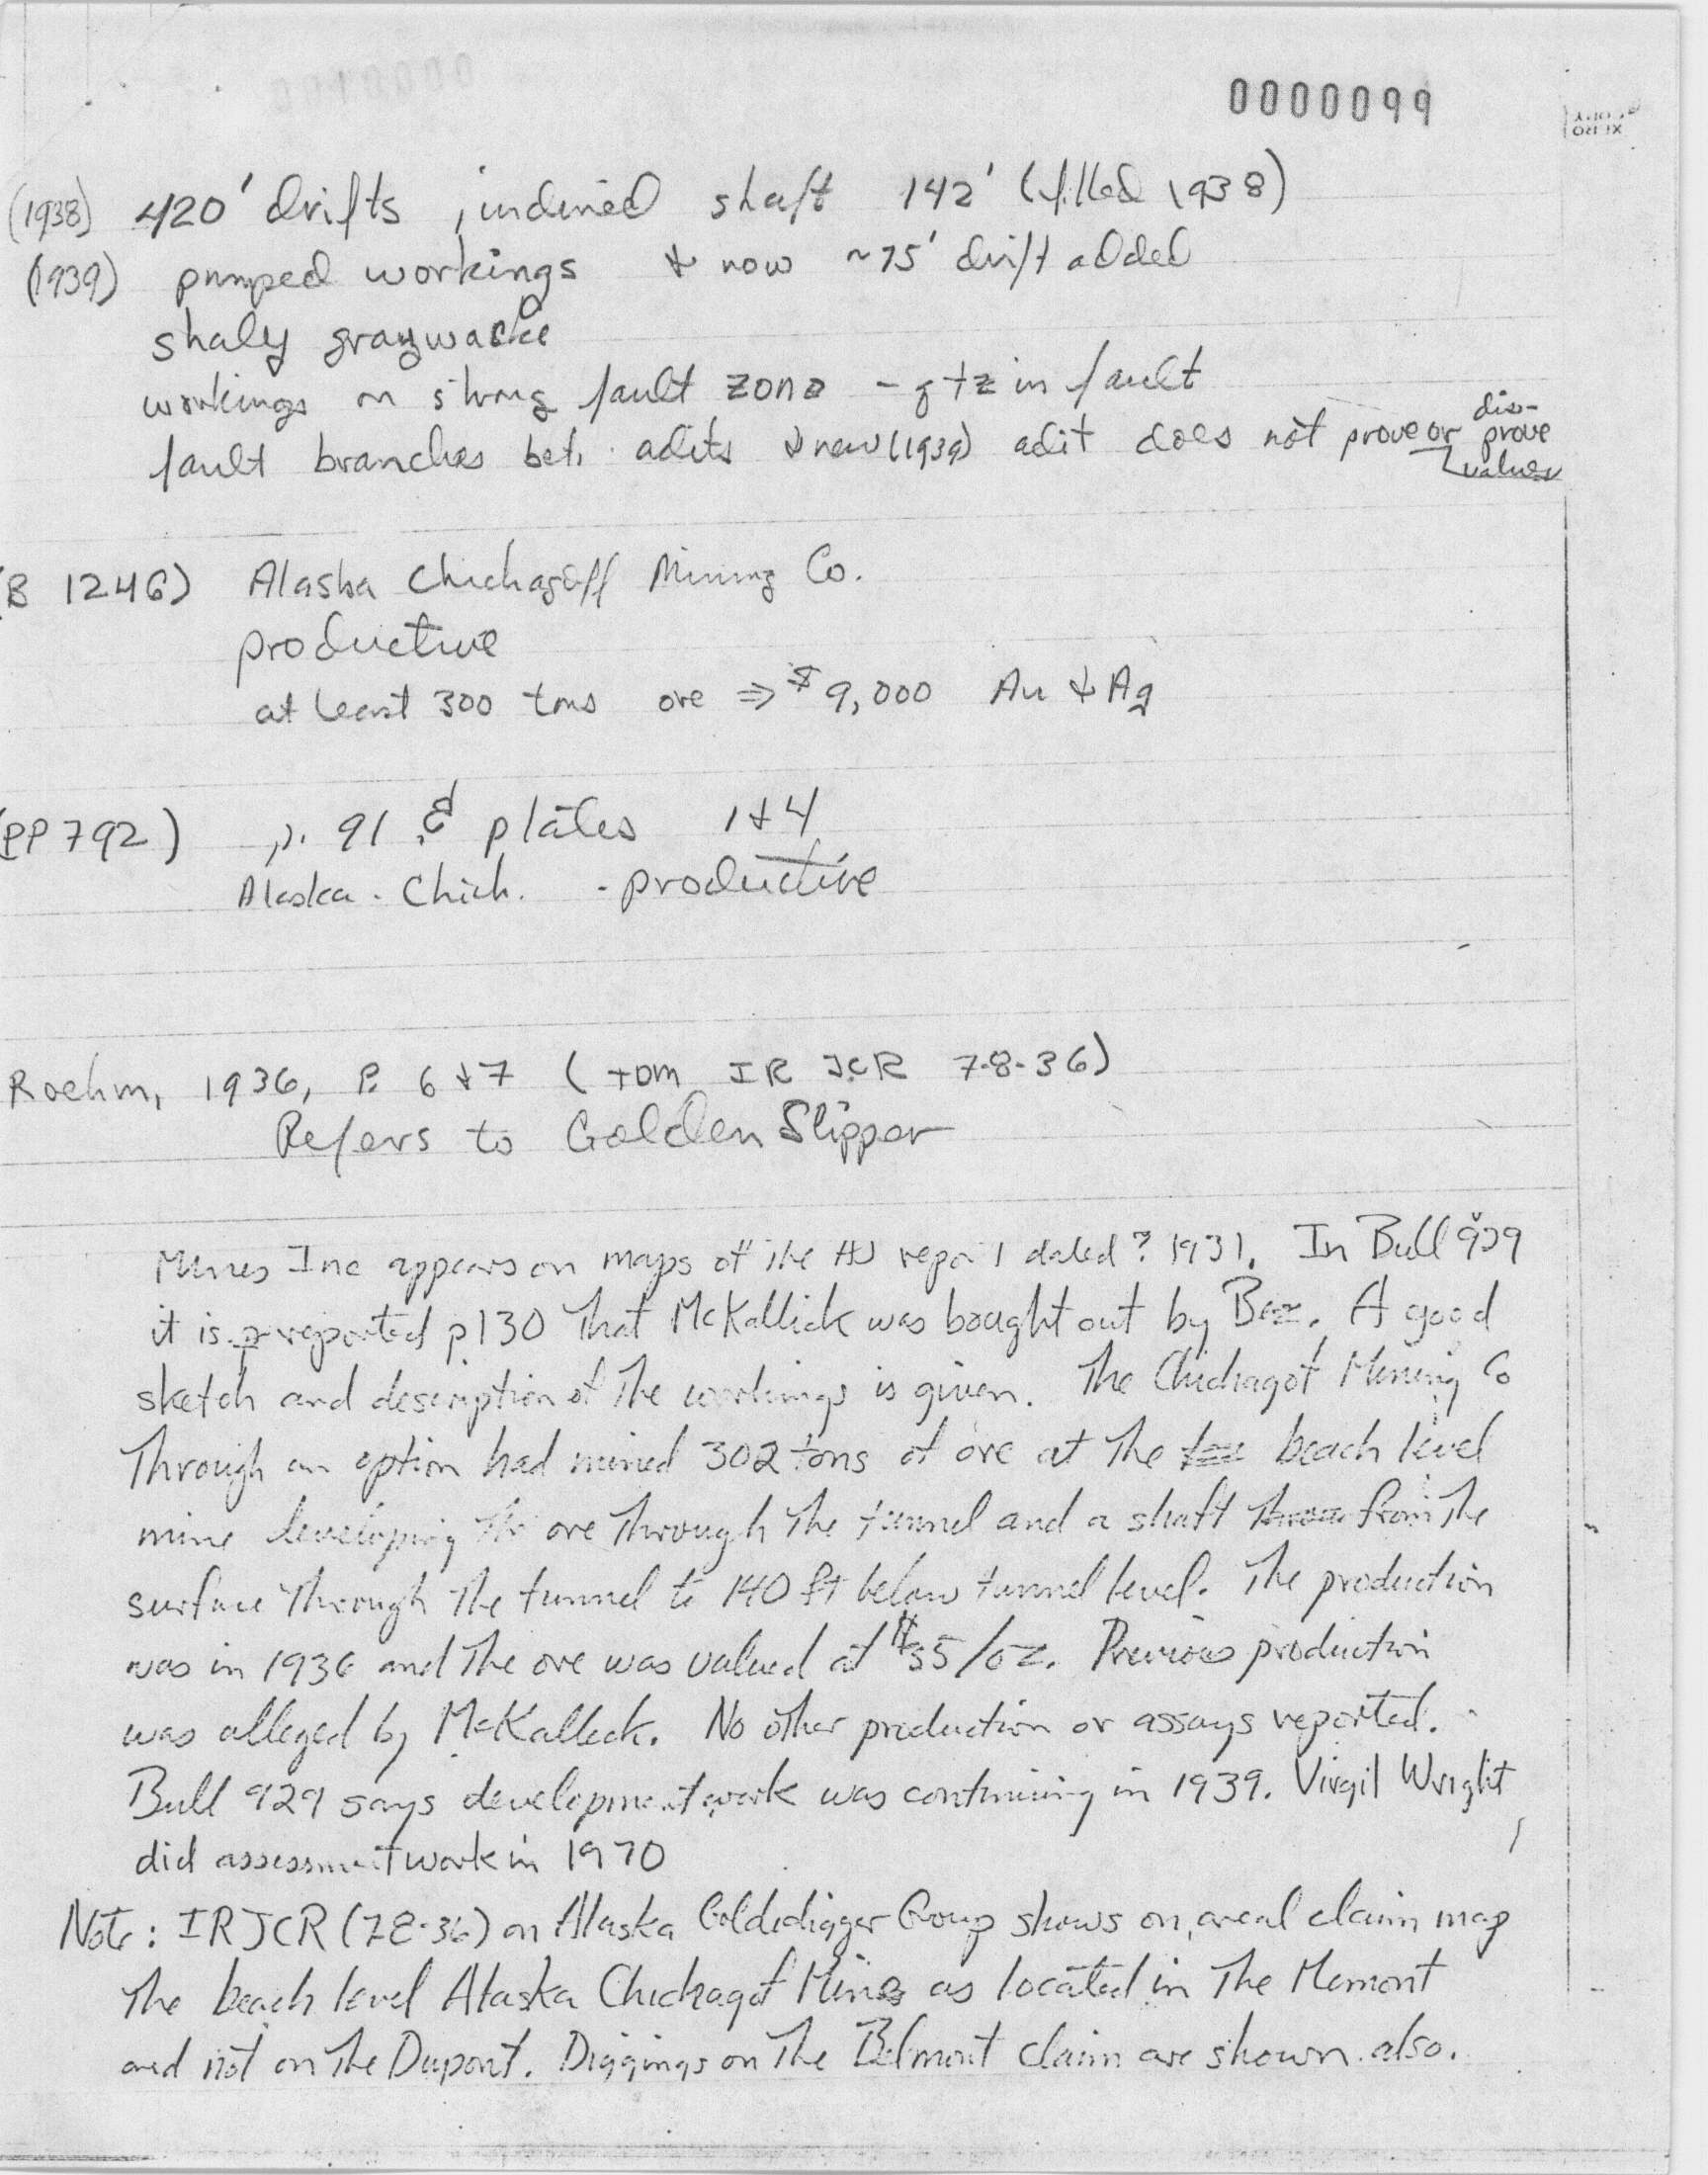 0000099
XERO COPY
(1938) 420' drifts, inclined shaft 142' (filled 1938)
(1939) pumped workings & now ~75' drift added
shaly graywacke
workings on strong fault zone - qtz in fault
fault branches bet. adits & new (1939) adit does not prove or dis-prove values
(B 1246) Alaska Chichagoff Mining Co.
productive
at least 300 tons ore ⇒ $9,000 Au & Ag
(PP 792) p. 91 & plates 1 & 4
Alaska - Chich. - productive
Roehm, 1936, P. 6 & 7 (TDM IR JCR 7-8-36)
Refers to Golden Slipper
Mines Inc appears on maps of the report dated ? 1931. In Bull 929
it is reported p130 that McKallick was bought out by Baz. A good
sketch and description of the workings is given. The Chichagof Mining Co
Through an option had mined 302 tons of ore at the beach level
mine developing the ore through the tunnel and a shaft from the
surface through the tunnel to 140 ft below tunnel level. The production
was in 1936 and the ore was valued at $35/oz. Previous production
was alleged by McKalleck. No other production or assays reported.
Bull 929 says development work was continuing in 1939. Virgil Wright
did assessment work in 1970
Note: IRJCR (7-8-36) on Alaska Golddigger Group shows on areal claim map
the beach level Alaska Chichagof Mine as located in the Memont
and not on the Dupont. Diggings on the Belmont claim are shown also.